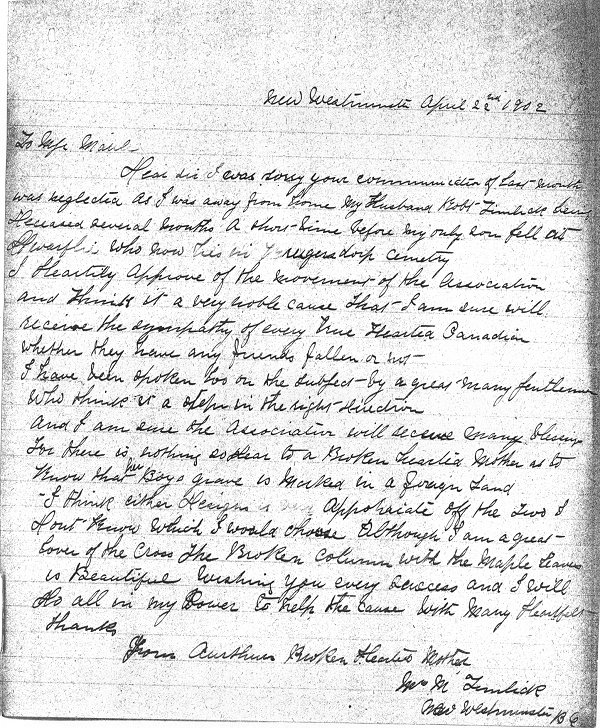 New Westminster April 22nd 1902
To Mr
Dear Sir I was sorry your communication of Last month
was neglected As I was away from Home My Husband Robt Timlick being
Deceased several months A short time before My only son fell at
who now lies in Krugersdorp cemetry
I Heartily Approve of the movement of the Association
and Think it a very noble cause That I am sure will
receive the sympathy of every True Hearted Canadian
whether they have any friends fallen or not
I have been spoken too on the subject by a great many Gentlemen
who think it a step in the right direction
And I am sure the Association will receive many Blessings
For there is nothing so dear to a Broken Hearted Mother as to
Know that her Boys grave is Marked in a foreign Land
I think either Design is very Appropriate off the Two I
Dont Know which I would choose Although I am a great
lover of the Cross The Broken Column with the Maple Leaves
is Beautiful Wishing You every success and I will
do all in my Power to help the cause With Many Heartfelt
Thanks
From Broken Hearted Mother
Mrs M Timlick
New Westminster B C